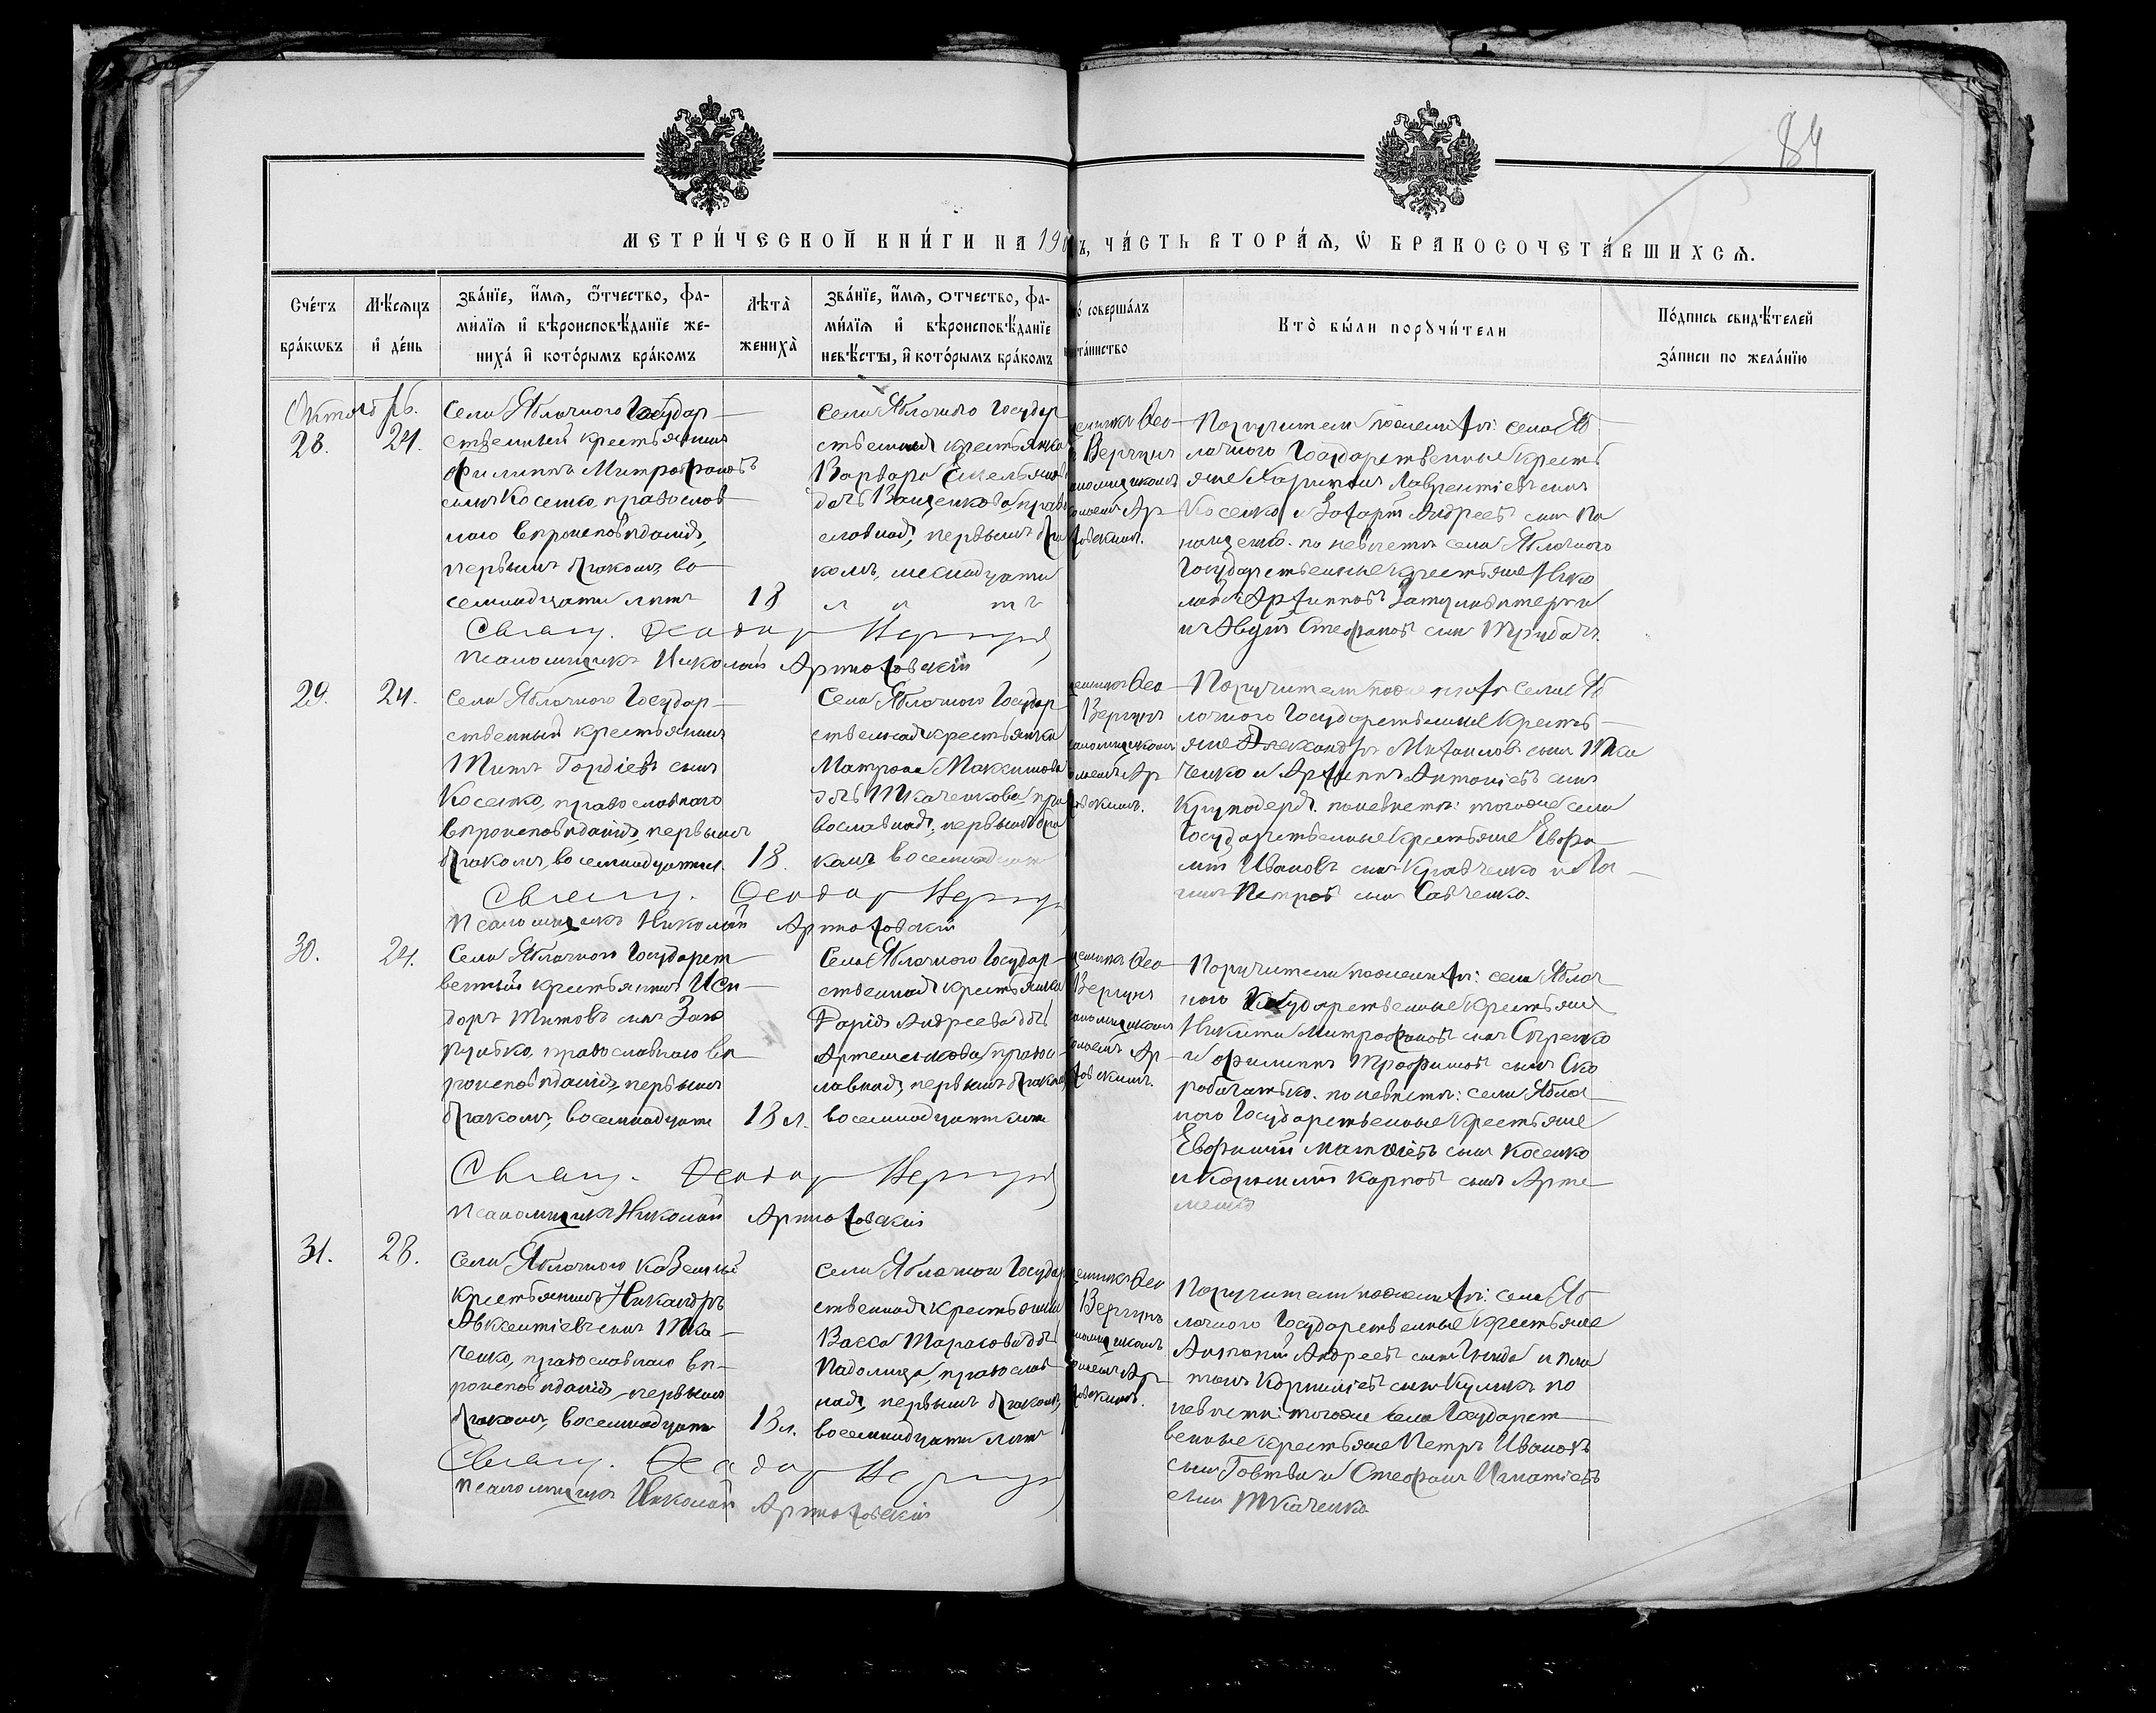 84
МЕТРИ́ЧЕСКОЙ КНИ́ГИ НА 190 Ъ, ЧА́СТЬ ВТОРА́Ѧ, Ѡ҆ БРАКОСОЧЕТА́ВШИХСѦ.
Сче́тъ бра́кѡвъ
Мѣ́сѧцъ и҆ де́нь
Зва́нїе, и҆́мѧ, ѻ҆́тчество, фа-
ми́лїѧ и҆ вѣроисповѣ́данїе же-
ниха́ и҆ кото́рымъ бра́комъ
Лѣ́та жениха̀
Зва́нїе, и҆́мѧ, ѻ҆тчество, фа-
ми́лїѧ и҆ вѣроисповѣ́данїе
невѣ́сты, и҆ кото́рымъ бра́комъ
о́ соверша́лъ
та́инство
Кто̀ бы́ли порꙋчи́тели
По́дпись свидѣ́телей
за́писи по жела́нїю
Октябрь.
28. 24.
Села Яблочного Государ-
ственный крестьянинъ
Филиппъ Митрофановъ
сынъ Косенко, православ-
наго вѣроисповѣданія,
первымъ бракомъ, во
семнадцати лѣтъ
18
Села Яблочного Государ
ственная крестьянка
Варвара Емельянова
дочь Ващенкова, право
славная, первымъ бра
комъ,
лѣтъ
Вергунъ
Поручители по женихѣ: села Яб
лочного Государственные кресть
яне Харитонъ Лаврентіевъ сынъ
Косенко и Захарій Андреевъ сынъ
по невѣстѣ села Яблочного
Государственные крестьяне Нико
лай Архиповъ
и Авдій Стефановъ сынъ
Священ. Феодоръ Вергунъ
Псаломщикъ Николай Артюховскій
29. 24.
Села Яблочного Государ-
ственный крестьянинъ
Титъ Гордіевъ сынъ
Косенко, православнаго
вѣроисповѣданія, первымъ
бракомъ, восемнадцати.
18.
Села Яблочного Государ
ственная крестьянка
Матрона Максимова
дочь Ткаченкова, пра
вославная, первымъ бра
комъ, восемнадцати
Вергунъ
Поручители по женихѣ села Яб
лочного Государственные кресть-
яне Александръ Михайловъ сынъ Тка
ченко и Архиппъ Антоніевъ сынъ
Круподеря. по невѣстѣ: тогоже села
Государственные крестьяне Евфи-
мій Ивановъ сынъ Кравченко и
Петровъ сынъ Савченко.
Священ. Феодоръ Вергунъ
Псаломщикъ Николай Артюховскій
30. 24.
Села Яблочного Государст
венный крестьянинъ Иси-
доръ Титовъ сынъ
православнаго вѣ-
роисповѣданія, первымъ
бракомъ, восемнадцати
18 л.
Села Яблочного Государ-
ственная крестьянка
Дарія Андреева дочь
Артеменкова, правос
лавная, первымъ бракомъ
восемнадцати лѣтъ
Вергунъ
Поручители по женихѣ: села Яблоч
ного Государственные крестьяне
Никита Митрофановъ сынъ
и Филиппъ Трофимовъ сынъ Ско
робагатько. по невѣстѣ: села Яблоч
ного Государственные крестьяне
Евфимій Матвіевъ сынъ Косенко
и Корнилій Карповъ сынъ Арте-
менко
Священ. Феодоръ Вергунъ
Псаломщикъ Николай Артюховскій
31. 28.
Села Яблочного казенный
крестьянинъ Никандръ
Авксентіевъ сынъ Тка-
ченко, православнаго вѣ-
роисповѣданія, первымъ
бракомъ, восемнадцати
18 л.
Села Яблочного Государ
ственная крестьянка
Васса Тарасова дочь
православ
ная, первымъ бракомъ,
восемнадцати лѣтъ
Вергунъ
Поручители по женихѣ: села Яб
лочного Государственные крестьяне
Антоній Андреевъ сынъ и Пла
тонъ Корниліевъ сынъ Куликъ по
невѣстѣ: тогоже села Государст
венные крестьяне Петръ Ивановъ
сынъ Говтва и Стефанъ Игнатіевъ
сынъ Ткаченко
Священ. Феодоръ Вергунъ
Псаломщикъ Николай Артюховскій